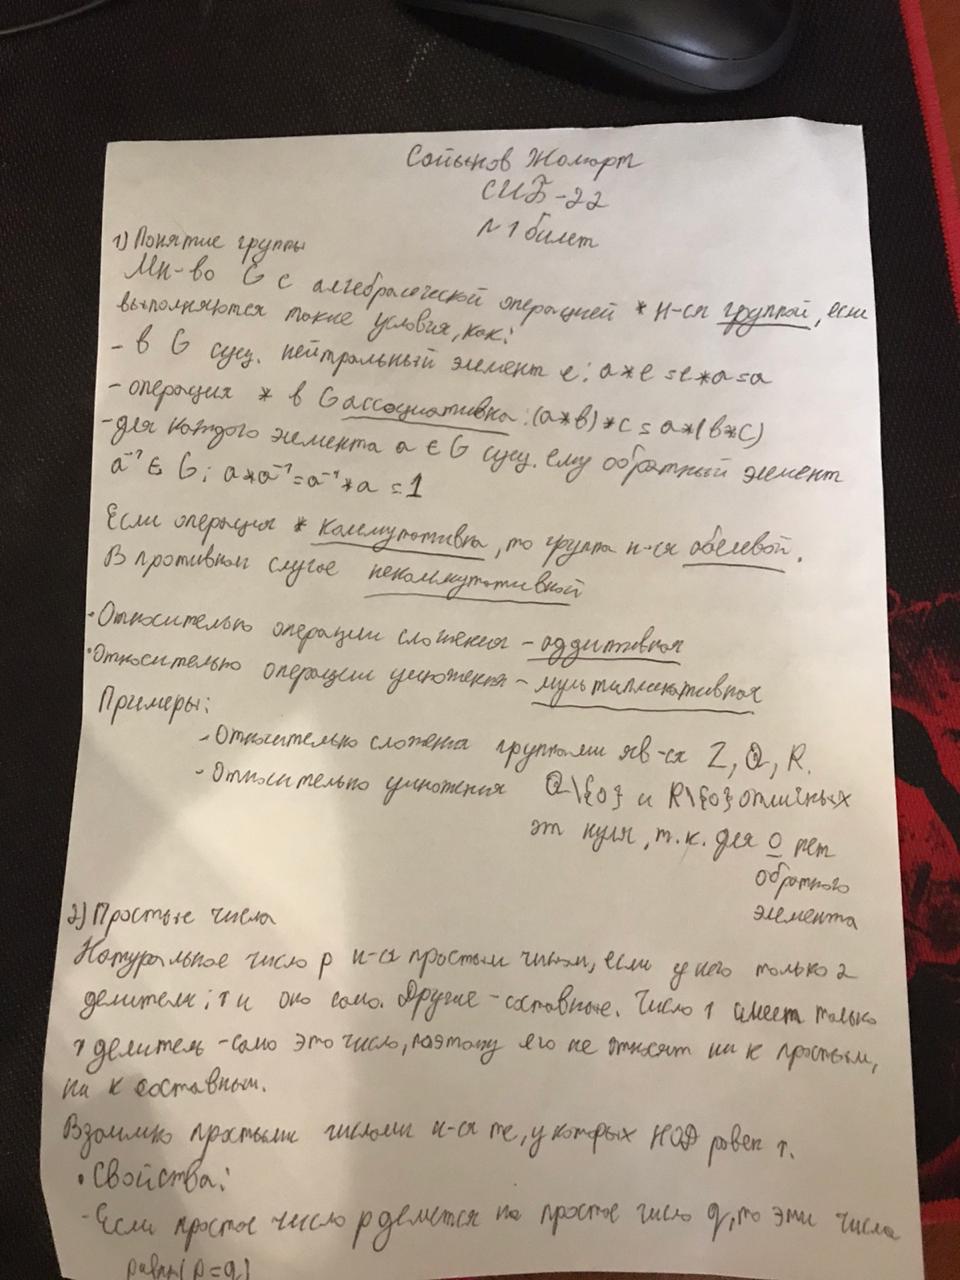 Жомарт
СИБ-22
№1 билет
1) Понятие группы
Мн-во G с алгебраической операцией * н-ся группой, если
выполняются такие условия, как:
- в G сущ. нейтральный элемент e: a*e=e*a=a
- операция * в G ассоциативна: (a*b)*c=a*(b*c)
-для каждого элемента a ∈ G сущ. ему обратный элемент
a⁻¹ ∈ G: a*a⁻¹=a⁻¹*a=1
Если операция * коммутативна, то группа н-ся абелевой.
В противном случае некоммутативной
•Относительно операции сложения - аддитивная
•Относительно операции умножения - мультипликативная
Примеры:
- Относительно сложения группами явл-ся Z, Q, R.
- Относительно умножения Q\{0} и R\{0} отличных
от нуля, т.к. для 0 нет
обратного
элемента
2) Простые числа
Натуральное число p н-ся простым числом, если у него только 2
делителя: 1 и оно само. Другие - составные. Число 1 имеет только
1 делитель - само это число, поэтому его не относят ни к простым,
ни к составным.
Взаимно простыми числами н-ся те, у которых НОД равен 1.
• Свойства:
- Если простое число p делится на простое число q, то эти числа
равны (p=q)